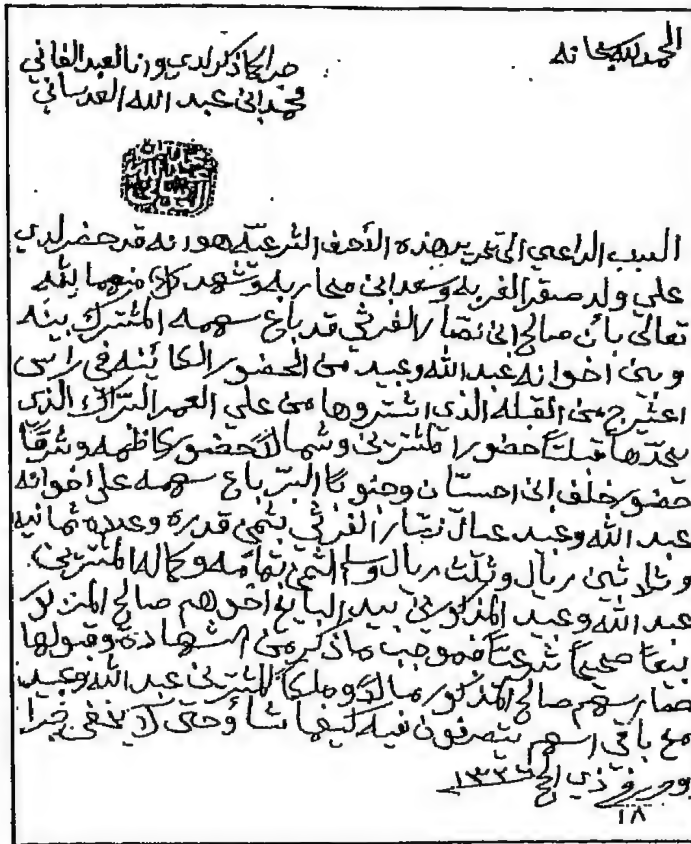 الحمد لله سبحانه
جرا كما ذكر لدي وانا العبد الفاني
محمد ابن عبد الله العدساني
السبب الداعي الى تحرير هذه الأحرف الشرعيه هو انه قد حضر لدي
علي ولد صقر الغربه وسعد ابن محاربه وشهد كلا منهما بالله
تعالى بأن صالح ابن نصار القرشي قد باع سهمه المشترك بينه
وبين اخوانه عبد الله وعبيد من الحضور الكائينه في راس
من القبله الذي اشتروها من علي العمر التراك الذي
يحدها قبلتاً حضور المشترين وشمالاً حضور كاظمه وشرقاً
حضور خلف ابن احسان وجنوباً البر باع سهمه على اخوانه
عبد الله وعبيد عيال نصار القرشي بثمن قدره وعدده ثمانيه
وثلاثين ريال وثلث ريال وسلم الثمن بتمامه وكماله المشترين
عبد الله وعبيد المذكورين بيد البايع اخوهم صالح المذكور
بيعاً صحيحاً شرعياً فموجب ما ذكر من الشهادة وقبولها
صار سهم صالح المذكور مالاً وملكاً للمشترين عبد الله وعبيد
مع باقي اسهم يتصرفون فيه كيفما شأو وحتى لا يخفى جرا
وحرر في ذي الحج
١٨